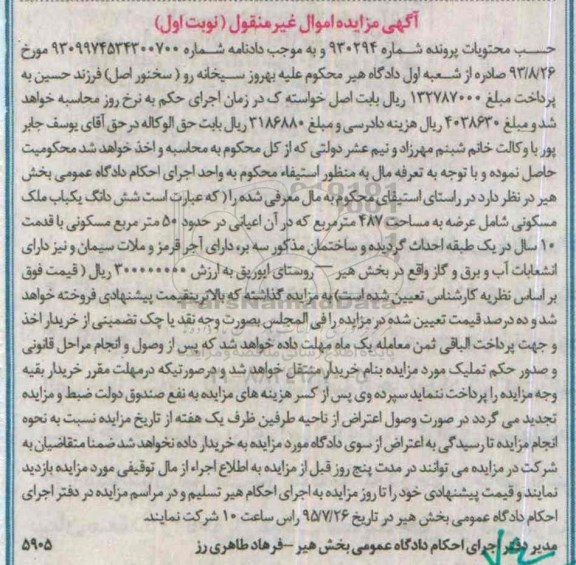 آگهی مزایده اموال غیر منقول ( نوبت اول)
حسب محتویات پرونده شماره ۹۳۰۲۹۴ و به موجب دادنامه شماره ۹۳۰۹۹۷۴۵۳۴۳۰۰۷۰۰ مورخ
۹۳/۸/۲۶ صادره از شعبه اول دادگاه هیر محکوم علیه بهروز سیخانه رو ( سخنور اصل) فرزند حسین به
پرداخت مبلغ ۱۳۲۷۸۷۰۰۰ ریال بابت اصل خواسته ک در زمان اجرای حکم به نرخ روز محاسبه خواهد
شد و مبلغ ۴۰۳۸۶۳۰ ریال هزینه دادرسی و مبلغ ۳۱۸۶۸۸۰ ریال بابت حق الوکاله در حق آقای یوسف جابر
پور با وکالت خانم شبنم مهرزاد و نیم عشر دولتی که از کل محکوم به محاسبه و اخذ خواهد شد محکومیت
حاصل نموده و با توجه به تعرفه مال به منظور استیفاء محکوم به واحد اجرای احکام دادگاه عمومی بخش
هیر در نظر دارد در راستای استیفای محکوم به مال معرفی شده را ( که عبارت است شش دانگ یکباب ملک
مسکونی شامل عرضه به مساحت ۴۸۷ مترمربع که در آن اعیانی در حدود ۵۰ متر مربع مسکونی با قدمت
۱۰ سال در یک طبقه احداث گردیده و ساختمان مذکور سه بره دارای آجر قرمز و ملات سیمان و نیز دارای
انشعابات آب و برق و گاز واقع در بخش هیر – روستای ایوریق به ارزش ۳۰۰۰۰۰۰۰۰ ریال ( قیمت فوق
بر اساس نظریه کارشناس تعیین شده است) به مزایده گذاشته که بالاترینقیمت پیشنهادی فروخته خواهد
شد و ده درصد قیمت تعیین شده در مزایده را فی المجلس بصورت وجه نقد یا چک تضمینی از خریدار اخذ
و جهت پرداخت الباقی ثمن معامله یک ماه مهلت داده خواهد شد که پس از وصول و انجام مراحل قانونی
و صدور حکم تملیک مورد مزایده بنام خریدار منتقل خواهد شد و درصورتیکه درمهلت مقرر خریدار بقیه
وجه مزایده را پرداخت ننماید سپرده وی پس از کسر هزینه های مزایده به نفع صندوق دولت ضبط و مزایده
تجدید می گردد در صورت وصول اعتراض از ناحیه طرفین ظرف یک هفته از تاریخ مزایده نسبت به نحوه
انجام مزایده تا رسیدگی به اعتراض از سوی دادگاه مورد مزایده به خریدار داده نخواهد شد ضمنا متقاضیان به
شرکت در مزایده می توانند در مدت پنج روز قبل از مزایده به اطلاع اجراء از مال توقیفی مورد مزایده بازدید
نمایند و قیمت پیشنهادی خود را تا روز مزایده به اجرای احکام هیر تسلیم و در مراسم مزایده در دفتر اجرای
احکام دادگاه عمومی بخش هیر در تاریخ ۹۵/۷/۲۶ راس ساعت ۱۰ شرکت نمایند.
مدیر دفتر اجرای احکام دادگاه عمومی بخش هیر – فرهاد طاهری رز
۵۹۰۵